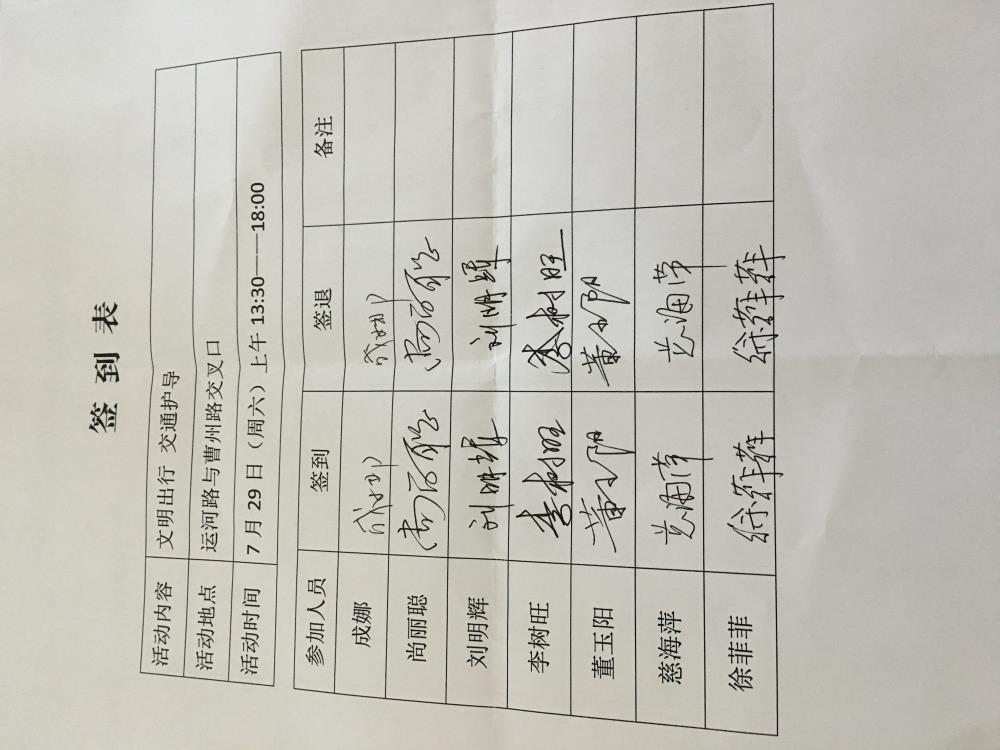 签到表
活动内容 文明出行 交通护导
活动地点 运河路与曹州路交叉口
活动时间 7月29日（周六）上午 13:30——18:00
参加人员 签到 签退 备注
成娜 成娜 成娜
尚丽聪 尚丽聪 尚丽聪
刘明辉 刘明辉 刘明辉
李树旺 李树旺 李树旺
董玉阳 董玉阳 董玉阳
慈海萍 慈海萍 慈海萍
徐菲菲 徐菲菲 徐菲菲